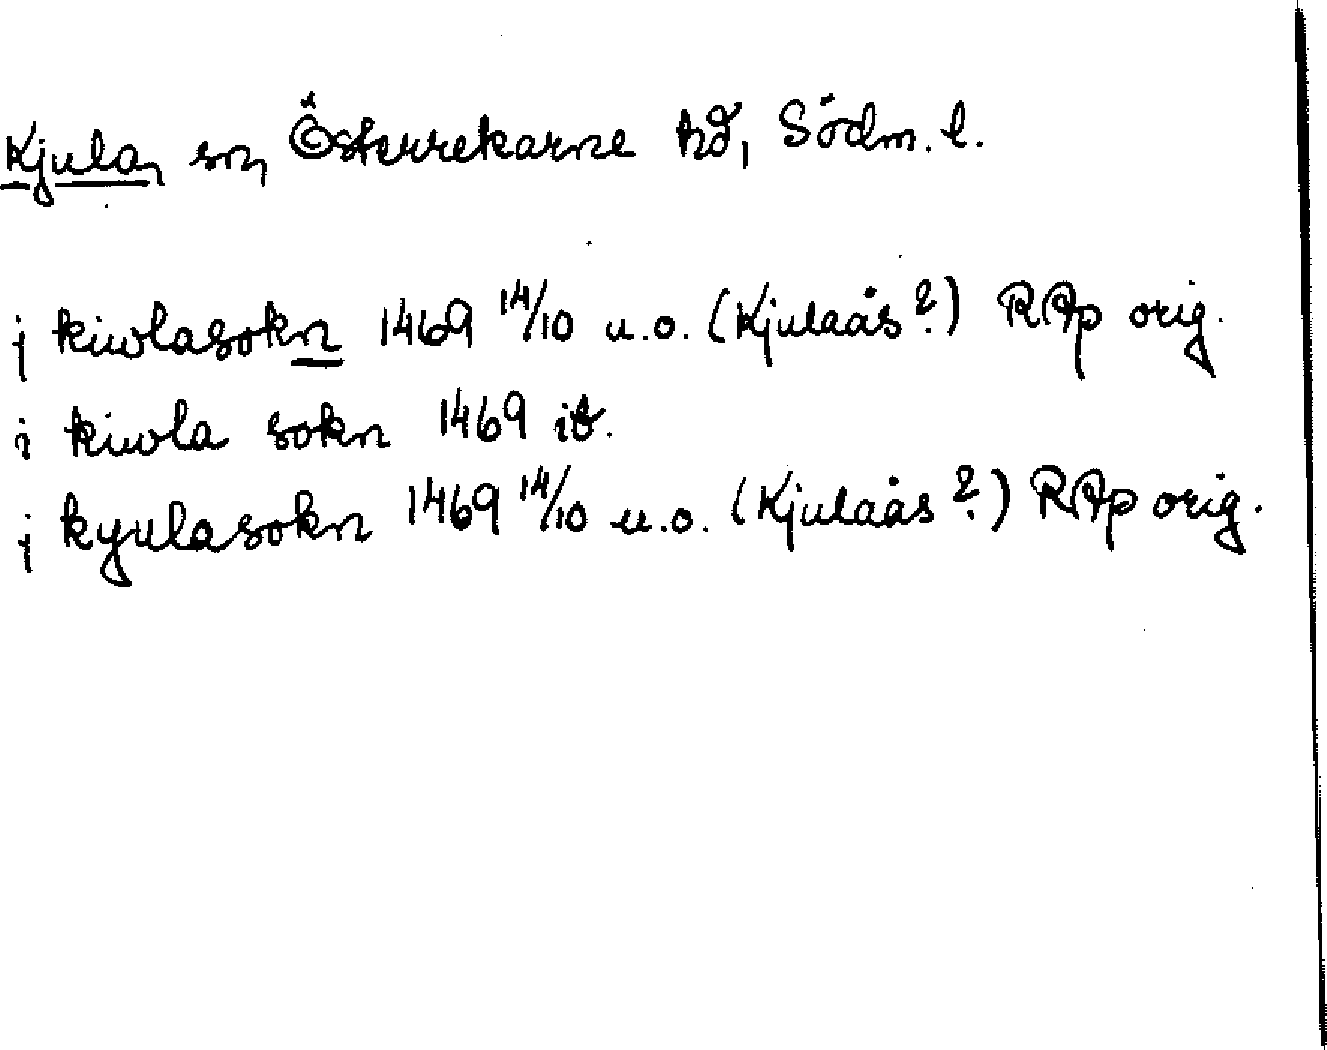 Kjula, sn, Österrekarne hd, Södm. l.
j kiwlasokn 1469 14/10 u.o. (Kjulaås?) RAp orig.
i kiwla sokn 1469 ib.
j kyulasokn 1469 14/10 u.o. (Kjulaås?) RAp orig.